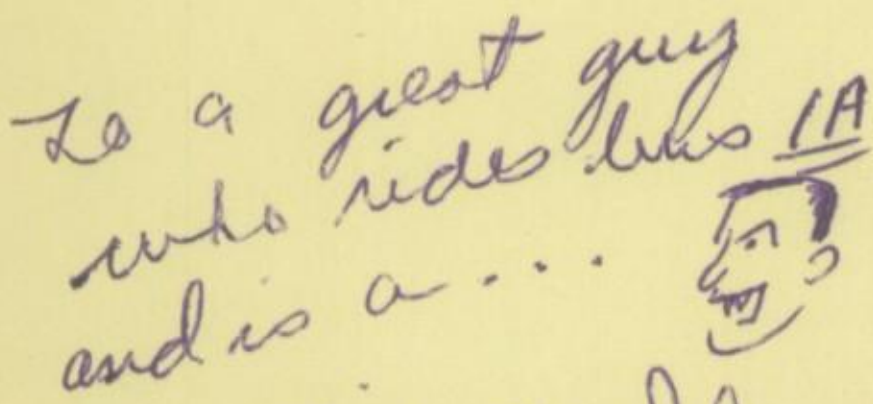 To a great guy
who rides bus 1A
and is a ...